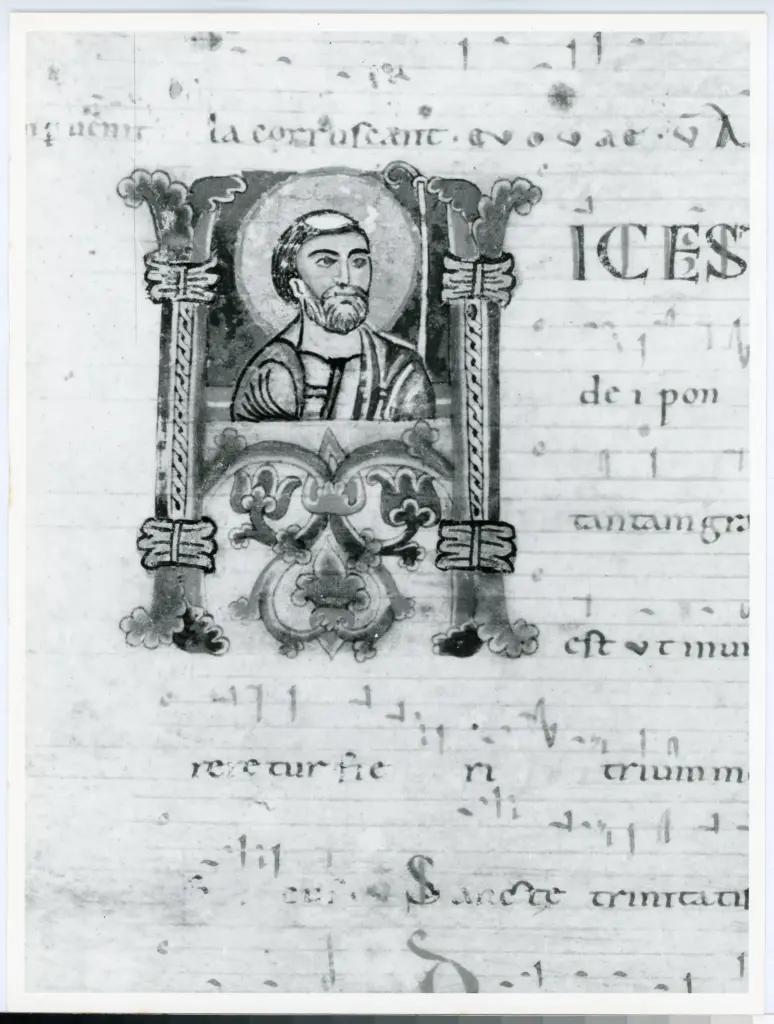 la corruscant · euouae · v̄ A
H ICES
de i pon
tantam gra
est ut mun
reretur fie ri trium m
Sancte trinitatis